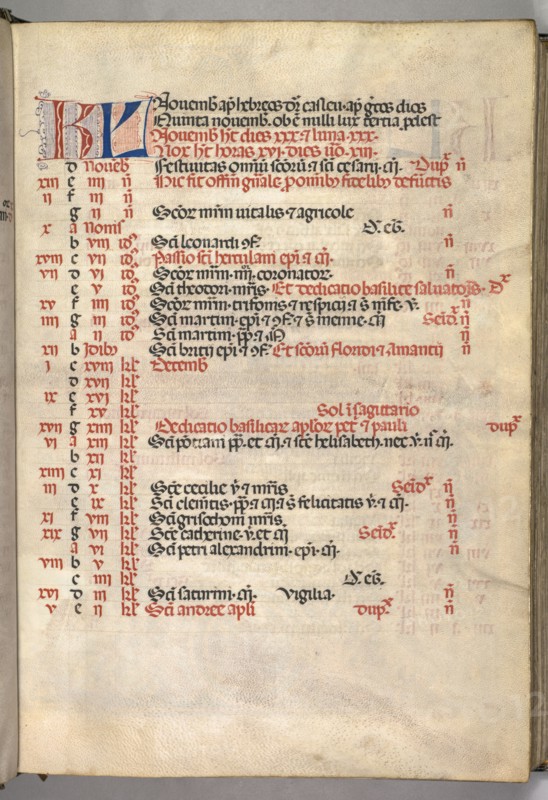 KL Nouemb ap hebreos dr casleu. ap grecos dios
Quinta nouemb. ob e nulli lux tercia pelest
Nouemb ht dies xxx. & luna. xxx.
Nox ht horas xvi. dies uo. viii.
d Noueb Festiuitas omium scorum & sci cesarii. m. Dup n
xiii e iiii n Hic fit offm gnale pomnib fidelib defunctis
ii f iii n
g ii n Scor mrm uitalis & agricole n
x a Nonis
b viii id Sci leonardi 9f. n
xviii c vii id Passio sci herculani epi & m.
vii d vi id Scor mrm. iiii. coronator. n
e v id Sci theodori. mris. Et dedicatio basilice saluatoris. D
xv f iiii id Scor mrm. trifonis & respicii & s nife. v. n
iiii g iii id Sci martini. epi & 9f. & s menne. m Seid. n
a ii id Sci martini. pp & m n
xii b Idib Sci britii epi & 9f. Et scorum floridi & amantii n
i c xviii kl Decemb
d xvii kl
ix e xvi kl
f xv kl Sol i sagittario
xvii g xiiii kl Dedicatio basilicar aplor pet & pauli dup
vi a xiii kl Sci pontiani pp. et m &
b xii kl
xiiii c xi kl
iii d x kl Sce cecilie v & mris Seid n
e ix kl Sci clemetis. pp & m & s felicitatis v. & m. n
xi f viii kl Sci grisogoni mris n
xix g vii kl Sce catherine. v. et m Seid. n
a vi kl Sci petri alexandrini. epi. m. n
viii b v kl
c iiii kl
xvi d iii kl Sci saturini. m. Vigilia. n
v e ii kl Sci andree apli dup. n